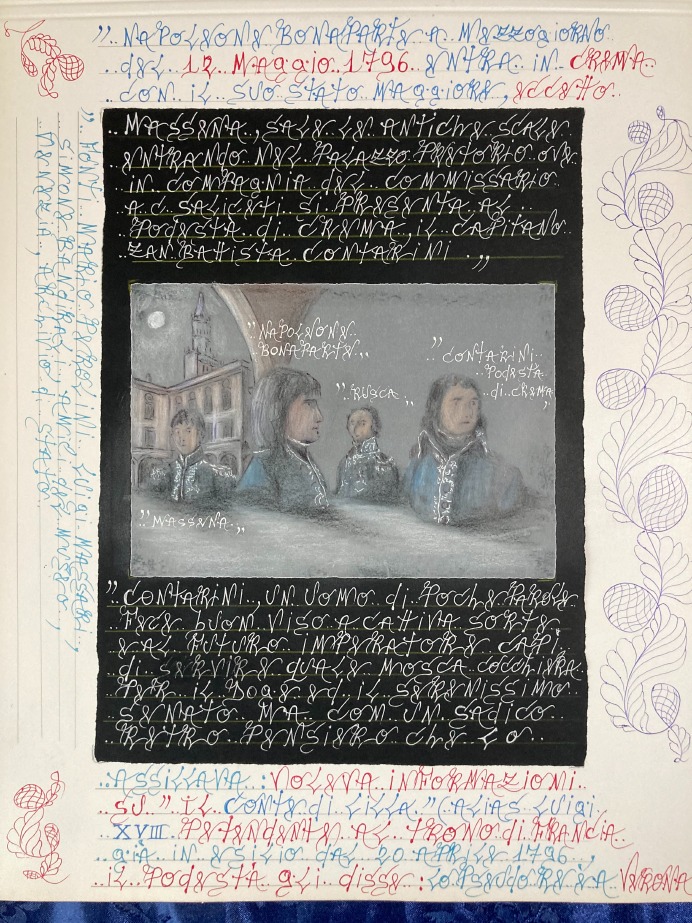 „ NAPOLEONE BONAPARTE A MEZZOGIORNO
DEL 12 MAGGIO 1796 ENTRA IN CREMA
CON IL SUO STATO MAGGIORE, ECCETTO
MASSENA, SALE LE ANTICHE SCALE
ENTRANDO NEL PALAZZO PRETORIO OVE
IN COMPAGNIA DEL COMMISSARIO
A.C. SALICETI SI PRESENTA AL
PODESTÀ DI CREMA IL CAPITANO
ZAN BATTISTA CONTARINI. „
„ NAPOLEONE
BONAPARTE „
„ RUSCA „
„ CONTARINI
PODESTÀ
di CREMA
„
„ MASSENA „
„ CONTARINI, UN UOMO di POCHE PAROLE
FECE BUON VISO A CATTIVA SORTE
E AL FUTURO IMPERATORE CAPÌ
di SERVIRE QUALE MOSCA COCCHIERA
PER IL DOGE ED IL SERENISSIMO
SENATO MA CON UN SADICO
RETRO PENSIERO CHE LO
ASSILLAVA: VOLEVA INFORMAZIONI
SU " IL CONTE di LILLA " (ALIAS LUIGI
XVIII PETENDENTE AL TRONO di FRANCIA
GIÀ IN ESILIO DAL 20 APRILE 1796,
IL PODESTÀ GLI DISSE: LO VERONA
„ MARIO PEROLINI, LUIGI MASSARI,
SIMONE BANDIRALI AMICI DEL MUSEO,
VENEZIA, ARCHIVIO di STATO.